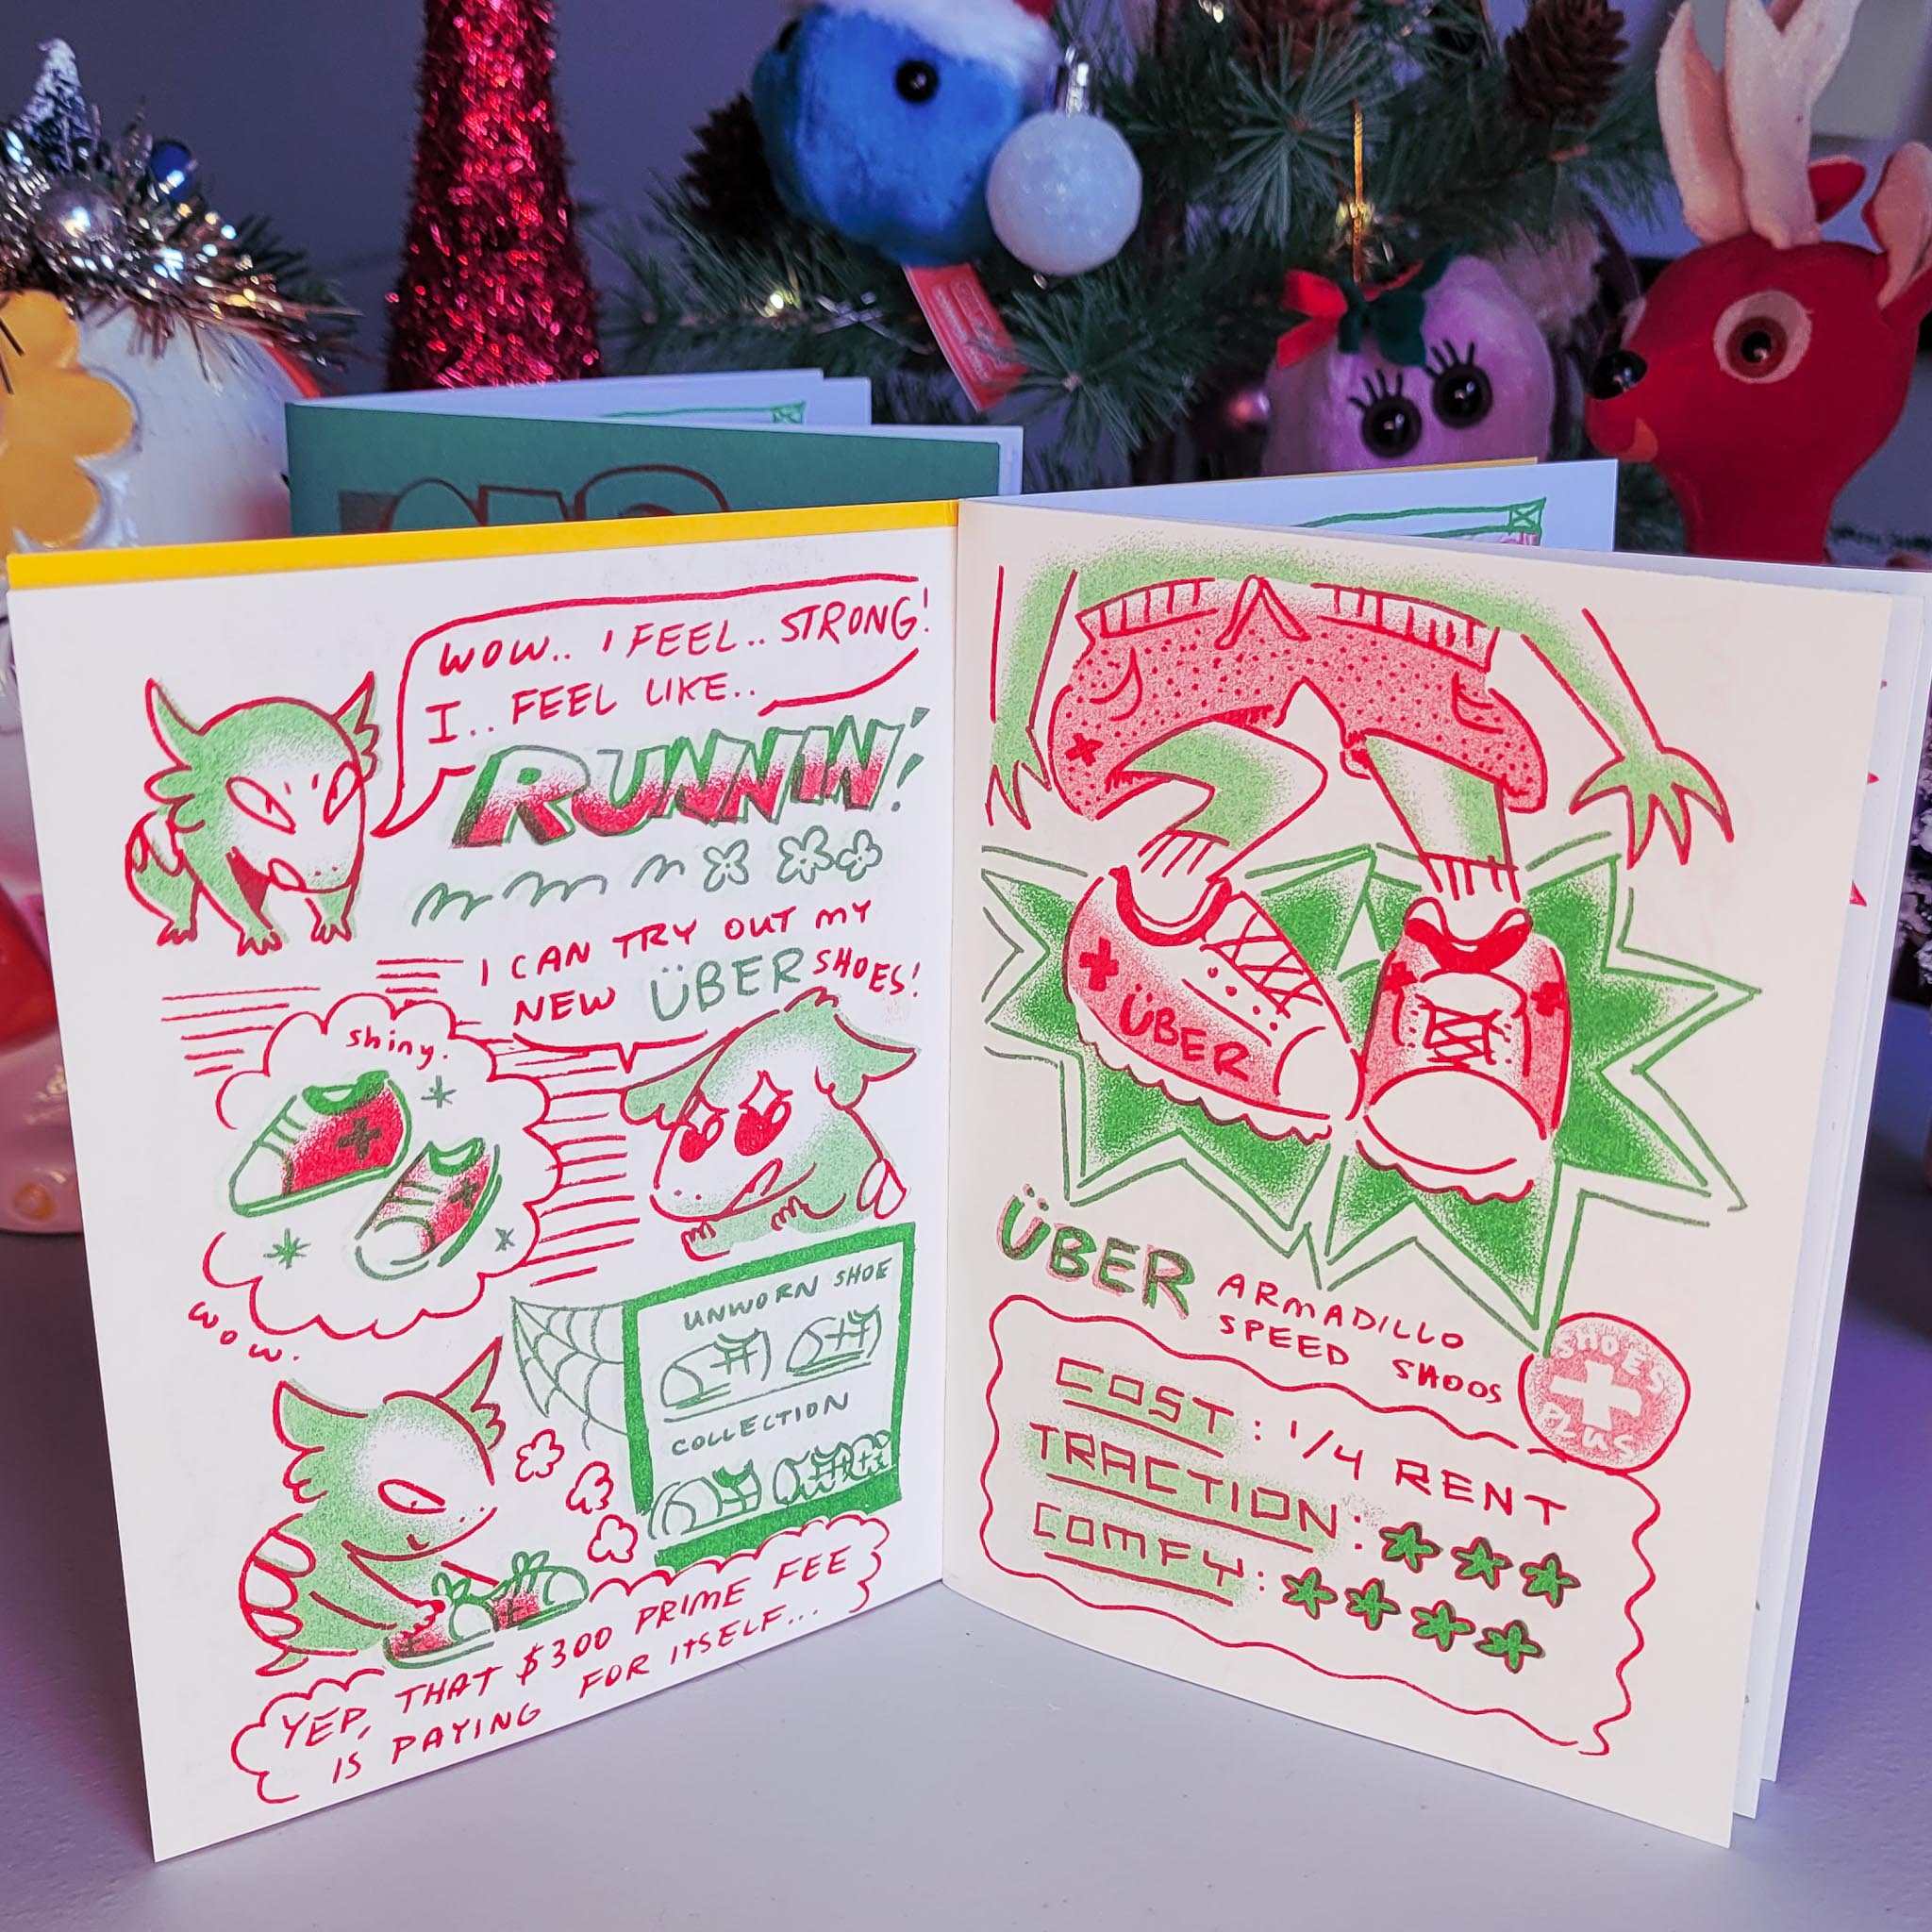 WOW.. I FEEL.. STRONG!
I.. FEEL LIKE..
RUNNIN'!
I CAN TRY OUT MY
NEW ÜBER SHOES!
shiny.
WOW.
UNWORN SHOE
COLLECTION
YEP, THAT $300 PRIME FEE
IS PAYING FOR ITSELF...
ÜBER
ÜBER ARMADILLO
SPEED SHOOS
SHOES
PLUS
COST: 1/4 RENT
TRACTION:
COMFY: